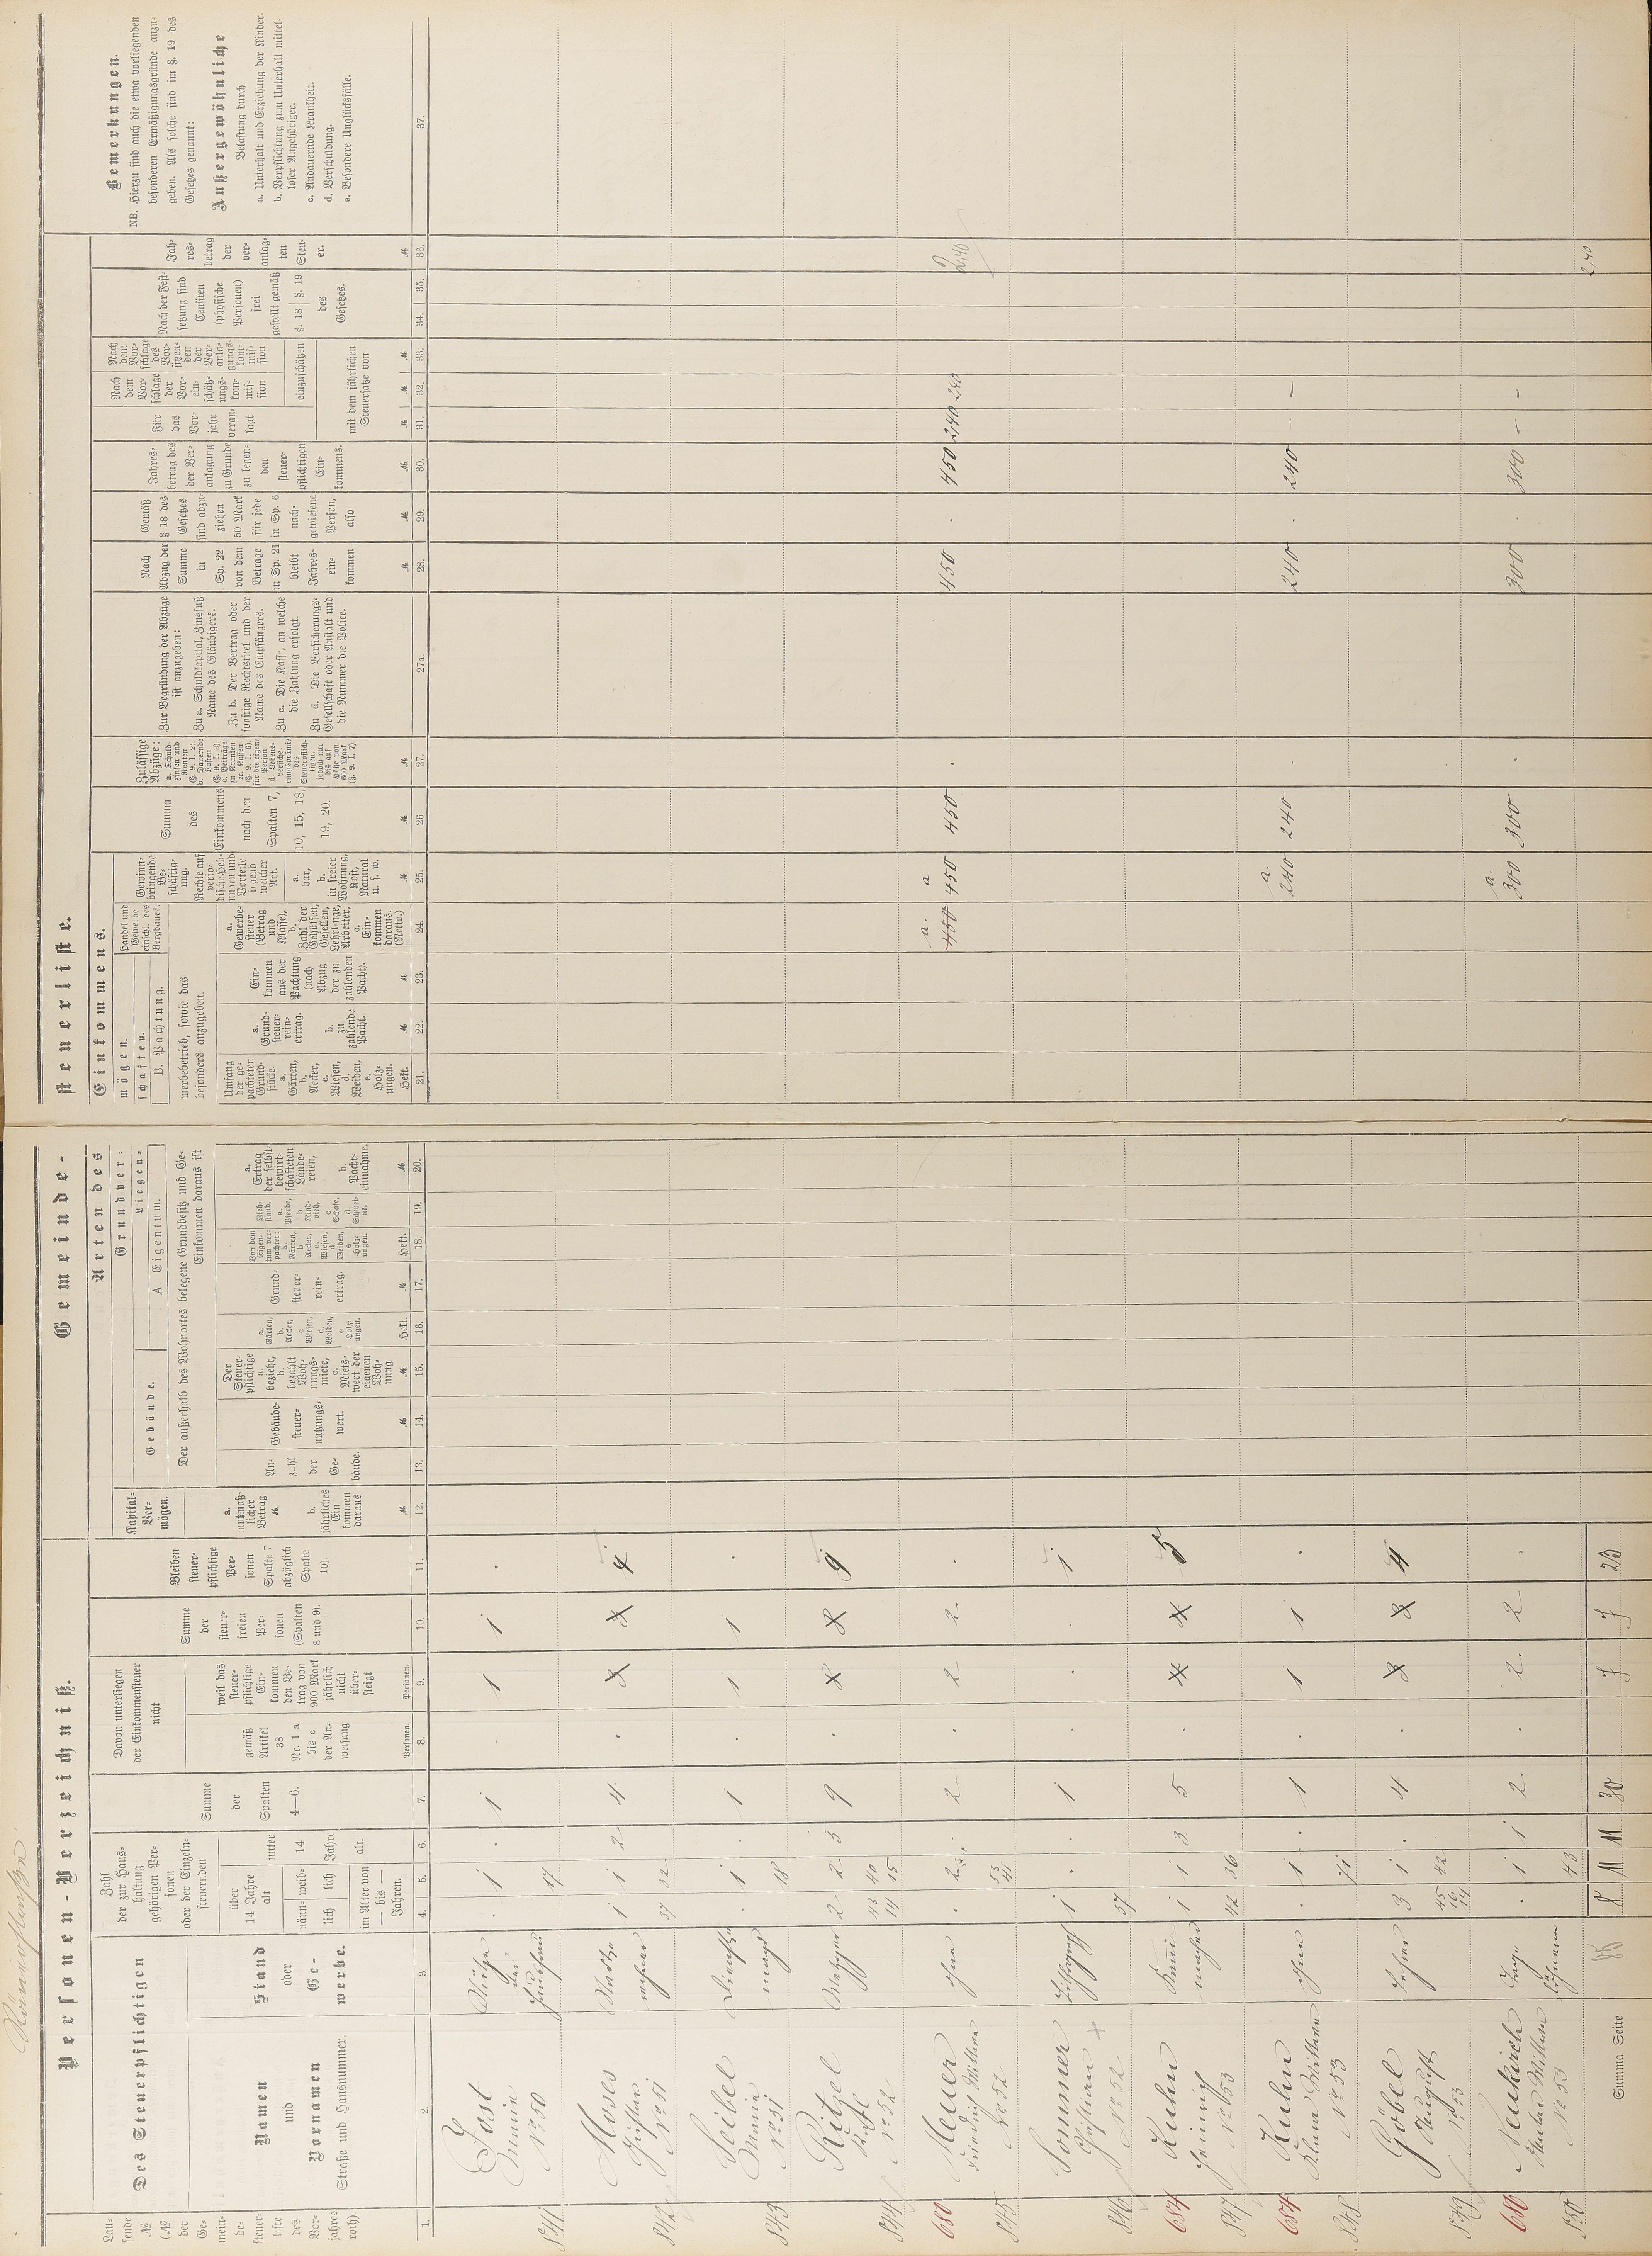 Personen-Verzeichniß.
Gemeinde-
steuerliste.
Lau-
fende
№
(№
der
Ge-
mein-
de-
steuer-
liste
des
Vor-
jahres
roth).
1.
Des Steuerpflichtigen
Namen
und
Vornamen
Straße und Hausnummer.
2.
Stand
oder
Ge-
werbe.
3.
Zahl
der zur Haus-
haltung
gehörigen Per-
sonen
oder der Einzeln-
steuernden
über
14 Jahre
alt
männ-
lich
weib-
lich
im Alter von
— bis —
Jahren.
4.
5.
unter
14
Jahre
alt.
6.
Summe
der
Spalten
4—6.
7.
Davon unterliegen
der Einkommensteuer
nicht
gemäß
Artikel
38
Nr. 1 a
bis c
der An-
weisung
Personen.
8.
weil das
steuer-
pflichtige
Ein-
kommen
den Be-
trag von
900 Mark
jährlich
nicht
über-
steigt
Personen.
9.
Summe
der
steuer-
freien
Per-
sonen
(Spalten
8 und 9).
10.
Bleiben
steuer-
pflichtige
Per-
sonen
Spalte 7
abzüglich
Spalte
10).
11.
Arten des
Einkommens.
Kapital-
Ver-
mögen.
a.
muthmaß-
licher
Betrag
ℳ
b.
jährliches
Ein
kommen
daraus
ℳ
12.
Grundver-
mögen.
Gebäude.
Liegen-
schaften.
A. Eigentum.
B. Pachtung.
Der außerhalb des Wohnortes belegene Grundbesitz und Ge-
werbebetrieb, sowie das
Einkommen daraus ist
besonders anzugeben.
An-
zahl
der
Ge-
bäude.
13.
Gebäude-
steuer-
nutzungs-
wert.
ℳ
14.
Der
Steuer-
pflichtige
a.
bezieht,
b.
bezahlt
Woh-
nungs-
miete,
c.
Miets-
wert der
eigenen
Woh-
nung
ℳ
15.
a.
Gärten,
b.
Aecker,
c
Wiesen,
d.
Weiden,
e
Holz-
ungen.
Hekt.
16.
Grund-
steuer-
rein-
ertrag.
ℳ
17.
Von dem
Eigen-
tum ver-
pachtet:
a
Gärten,
b
Aecker,
c.
Wiesen,
d
Weiden,
e
Holz-
ungen.
Hekt.
18.
Vieh-
stand.
a.
Pferde,
b
Rind-
vieh,
c
Schafe,
d.
Schwei-
ne.
19.
a.
Ertrag
der selbst-
bewirt-
schafteten
Lände-
reien,
b.
Pacht-
einnahme.
ℳ
20.
Umfang
der ge-
pachteten
Grund-
stücke.
a.
Gärten,
b.
Aecker,
c.
Wiesen,
d.
Weiden,
e.
Holz-
ungen.
Hekt.
21.
a.
Grund-
steuer-
rein-
ertrag.
b.
zu
zahlende
Pacht.
ℳ
22.
Ein-
kommen
aus der
Pachtung
(nach
Abzug
der zu
zahlenden
Pacht).
ℳ
23.
Handel und
Gewerbe
einschl. des
Bergbaues.
a.
Gewerbe-
steuer
(Betrag
und
Klasse),
b.
Zahl der
Gehülfen,
Gesellen,
Lehrlinge,
Arbeiter,
c.
Ein-
kommen
daraus.
(Netto.)
24.
Gewinn-
bringende
Be-
schäftig-
ung.
Rechte auf
perio-
dische Heb-
ungen und
Vorteile
irgend
welcher
Art.
a.
bar,
b.
in freier
Wohnung,
Kost,
Natural
u. s. w.
ℳ
25.
Summa
des
Einkommens
nach den
Spalten 7,
10, 15, 18,
19, 20.
ℳ
26
Zulässige
Abzüge:
a. Schuld-
zinsen und
Renten
(§. 9. I. 2).
b. Dauernde
Lasten
(§. 9. I. 3).
c. Beiträge
zu Kranken-
rc. Kassen
(§. 9. I. 6).
für die eigene
Person
d. Lebens-
versiche-
rungsprämie
des
Steuerpflich-
tigen,
jedoch nur
bis auf
Höhe von
600 Mark
(§. 9. I. 7).
ℳ
27.
Zur Begründung der Abzüge
ist anzugeben:
Zu a. Schuldkapital, Zinsfuß
Name des Gläubigers.
Zu b. Der Vertrag oder
sonstige Rechtstitel und der
Name des Empfängers.
Zu c. Die Kasse, an welche
die Zahlung erfolgt.
Zu d. Die Versicherungs-
Gesellschaft oder Anstalt und
die Nummer die Police.
27a.
Nach
Abzug der
Summe
in
Sp. 22
von dem
Betrage
in Sp. 21
bleibt
Jahres-
ein-
kommen
ℳ
28.
Gemäß
§ 18 des
Gesetzes
sind abzu-
ziehen
50 Mark
für jede
in Sp. 6
nach-
gewiesene
Person,
also
ℳ
29.
Jahres-
betrag des
der Ver-
anlagung
zu Grunde
zu legen-
den
steuer-
pflichtigen
Ein-
kommens.
ℳ
30.
Für
das
Vor-
jahr
veran-
lagt
ℳ
31.
Nach
dem
Vor-
schlage
der
Vor-
ein-
schätz-
ungs-
kom-
mis-
sion
ℳ
32.
Nach
dem
Vor-
schlage
des
Vor-
sitzen-
den
der
Ver-
anla-
gungs-
kom-
mis-
sion
ℳ
33.
einzuschätzen
mit dem jährlichen
Steuersatze von
Nach der Fest-
setzung sind
Censiten
(physische
Personen)
frei
gestellt gemäß
§. 18
§. 19
des
Gesetzes.
34.
35.
Jah-
res-
betrag
der
ver-
anlag-
ten
Steu-
er.
ℳ
36.
Bemerkungen.
NB. Hierzu sind auch die etwa vorliegenden
besonderen Ermäßigungsgründe anzu-
geben. Als solche sind im §. 19 des
Gesetzes genannt:
Außergewöhnliche
Belastung durch
a. Unterhalt und Erziehung der Kinder.
b. Verpflichtung zum Unterhalt mittel-
loser Angehöriger.
c. Andauernde Krankheit.
d. Verschuldung.
e. Besondere Unglücksfälle.
37.
841
Jost
Minnie
№ 50
1 1 1 1
17
842
Moses
Christian
№ 51
1 1 2 4 3 3 4
37 32
843
Seibel
Minnie
№ 51
Dienst-
magd
1 1 1 1
18
844
Ritzel
Karl
№ 52
Metzger
2 2 5 9 8 8 9
43 40
14 15
680
845
Meuer
Friedrich Wittwe
№ 52
ohne
2 2 2 2
a. 450 a 450 450 450 450 2,40 2,40 2,40
846
Sommer
Christian
№ 52
Lithograph
1 1 1
37
684
847
Kuhn
Heinrich
№ 53
1 1 3 5 4 4 5
42 36
684
848
Kuhn
Wittwe
№ 53
ohne
1 1 1 1
71
a. 240 240 240 240 - -
849
Göbel
August
№ 53
3 1 4 3 3 4
45 42
16
14
686
850
Neukirch
Gustav Wittwe
№ 53
1 1 2 2 2
43
a. 300 300 300 300 - -
Summa Seite
85
8 11 11 30 7 7 23
2,40